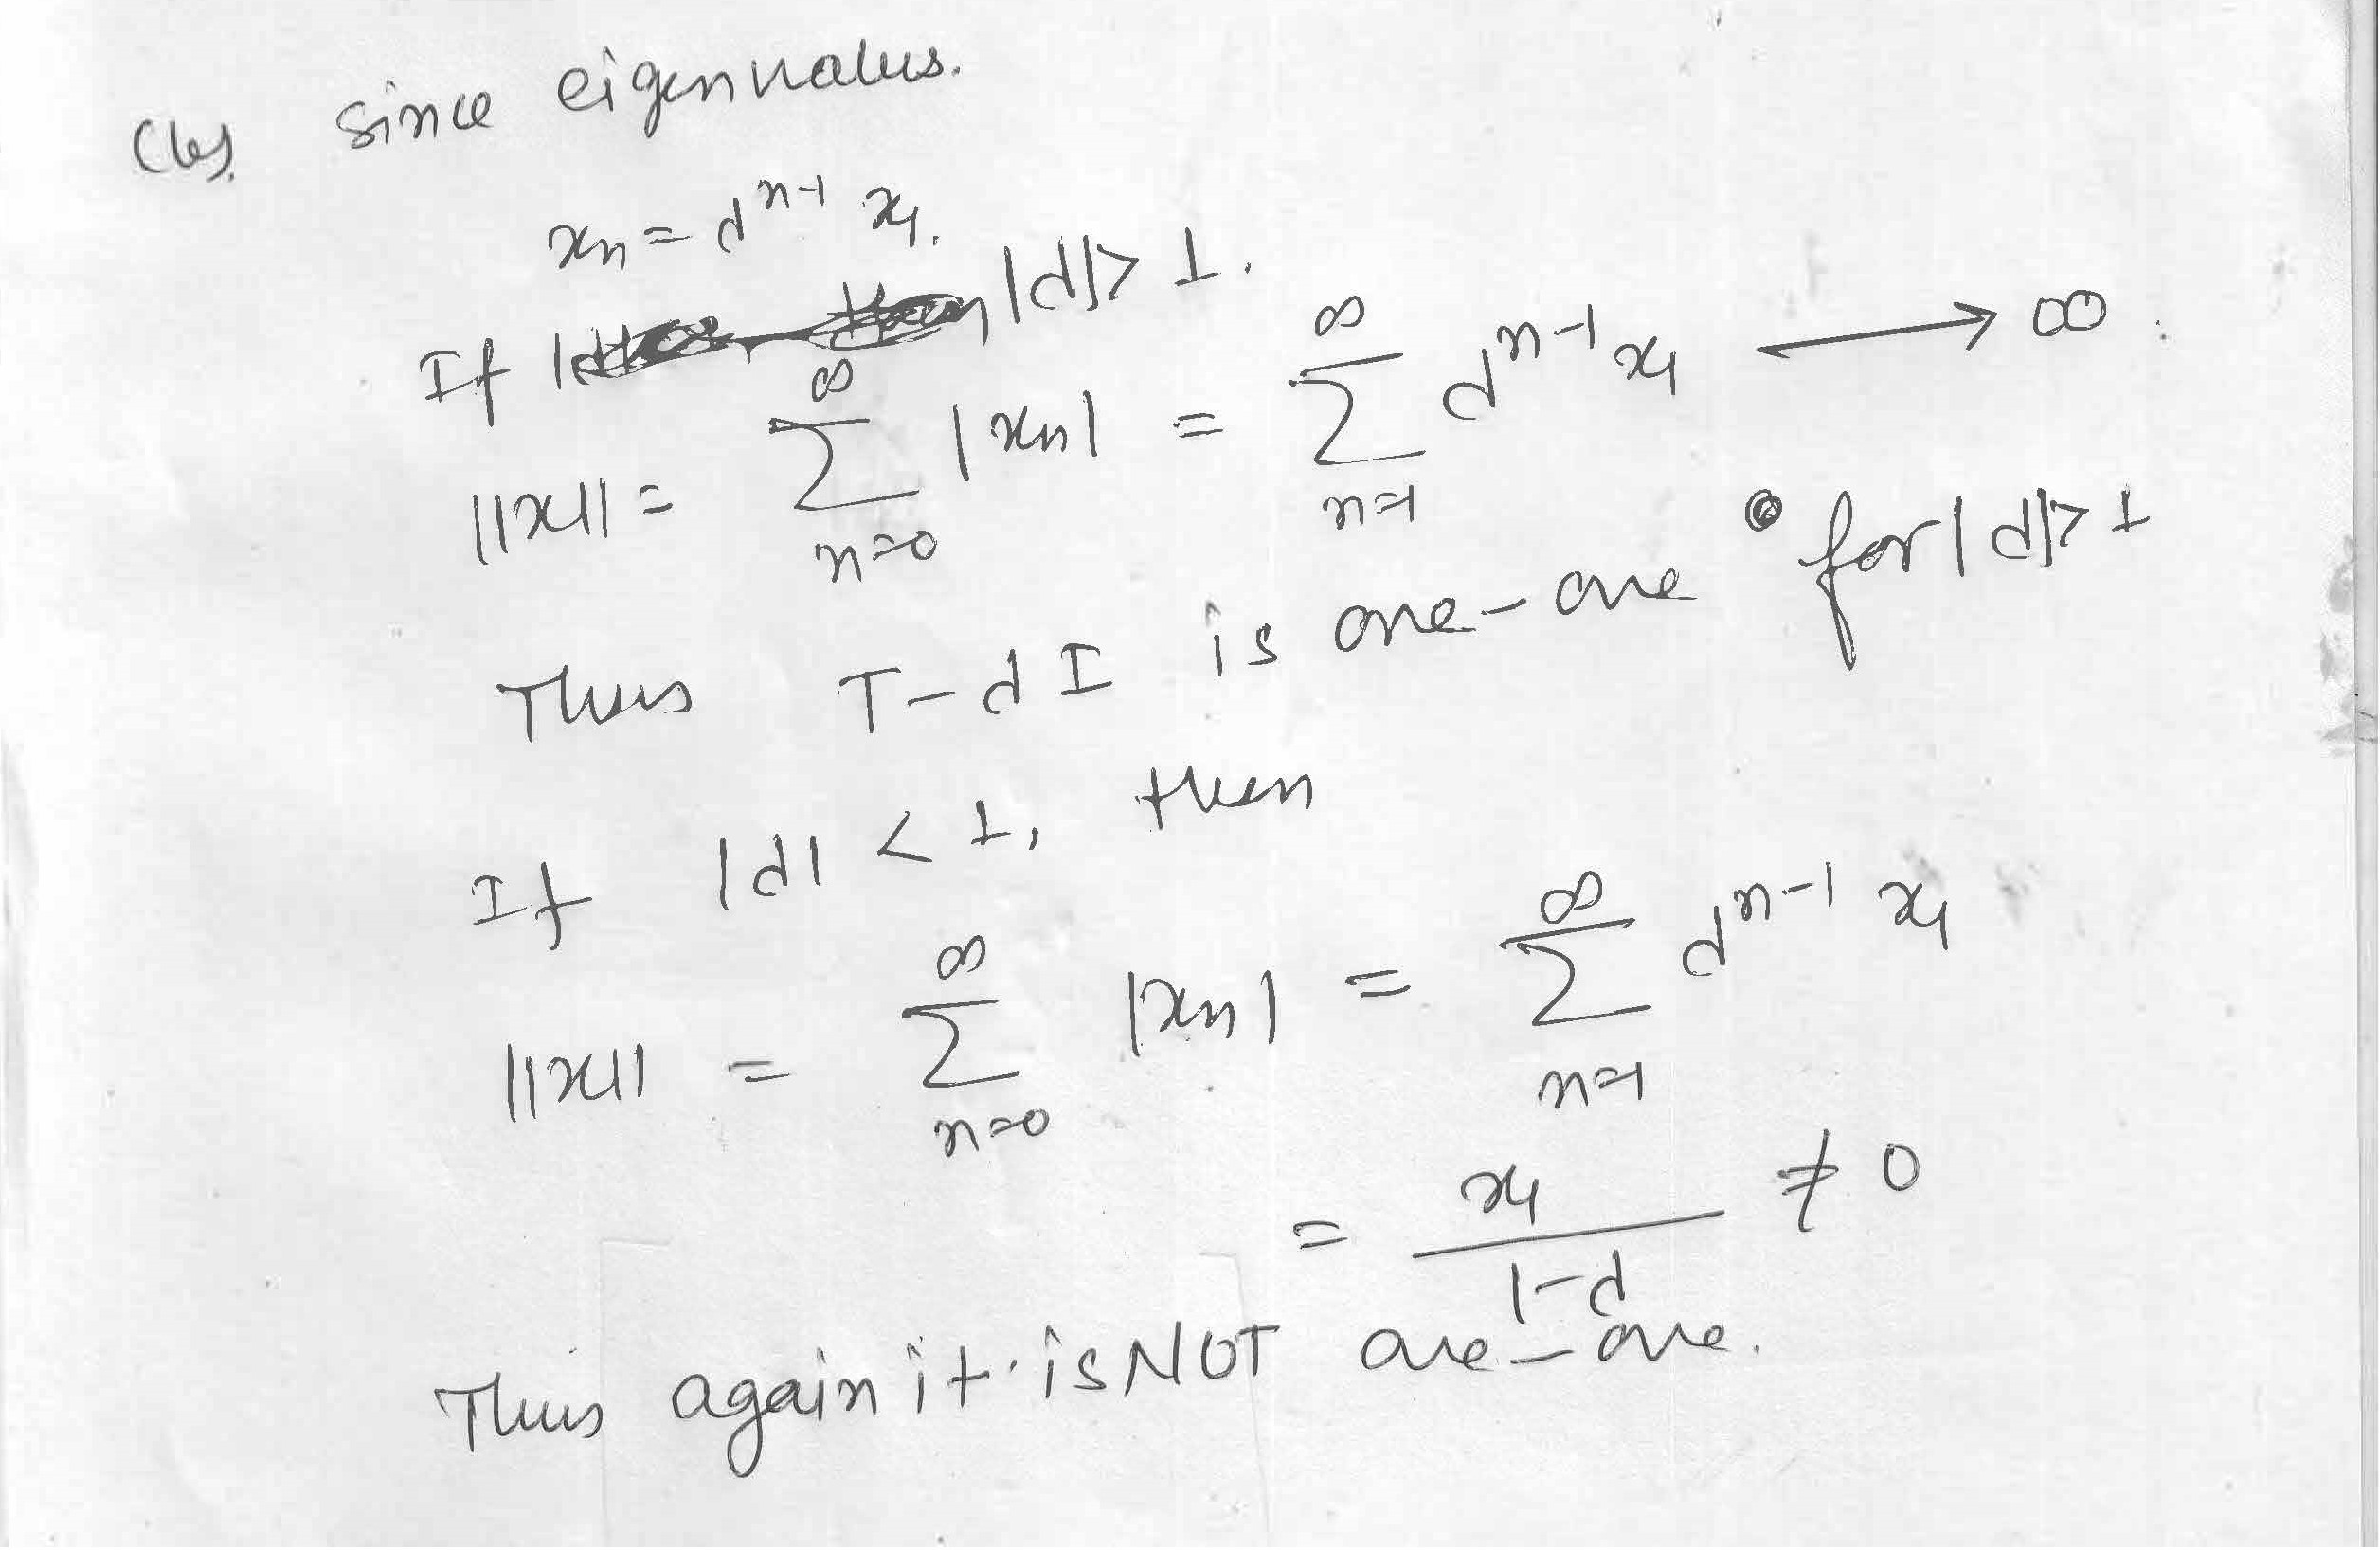 (b). since eigenvalues.
xn = d^{n-1} x1.
If |d|> 1.
||x|| = ∑_{n=0}^{∞} |xn| = ∑_{n=1}^{∞} d^{n-1} x1 ⟶ ∞.
Thus T-dI is one-one for |d|> 1
If |d| < 1, then
||x|| = ∑_{n=0}^{∞} |xn| = ∑_{n=1}^{∞} d^{n-1} x1
= x1/(1-d) ≠ 0
Thus again it is NOT one-one.